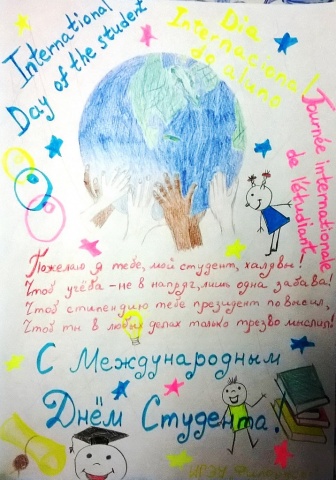 International
Day of the student
Dia
Internacional
do aluno!
Journée internationale
de l'étudiant
Пожелаю я тебе, мой студент, халявы!
Чтоб учёба - не в напряг, лишь одна забава!
Чтоб стипендию тебе президент повысил,
Чтоб ты в любых делах только трезво мыслил!
С Международным
Днём Студента.